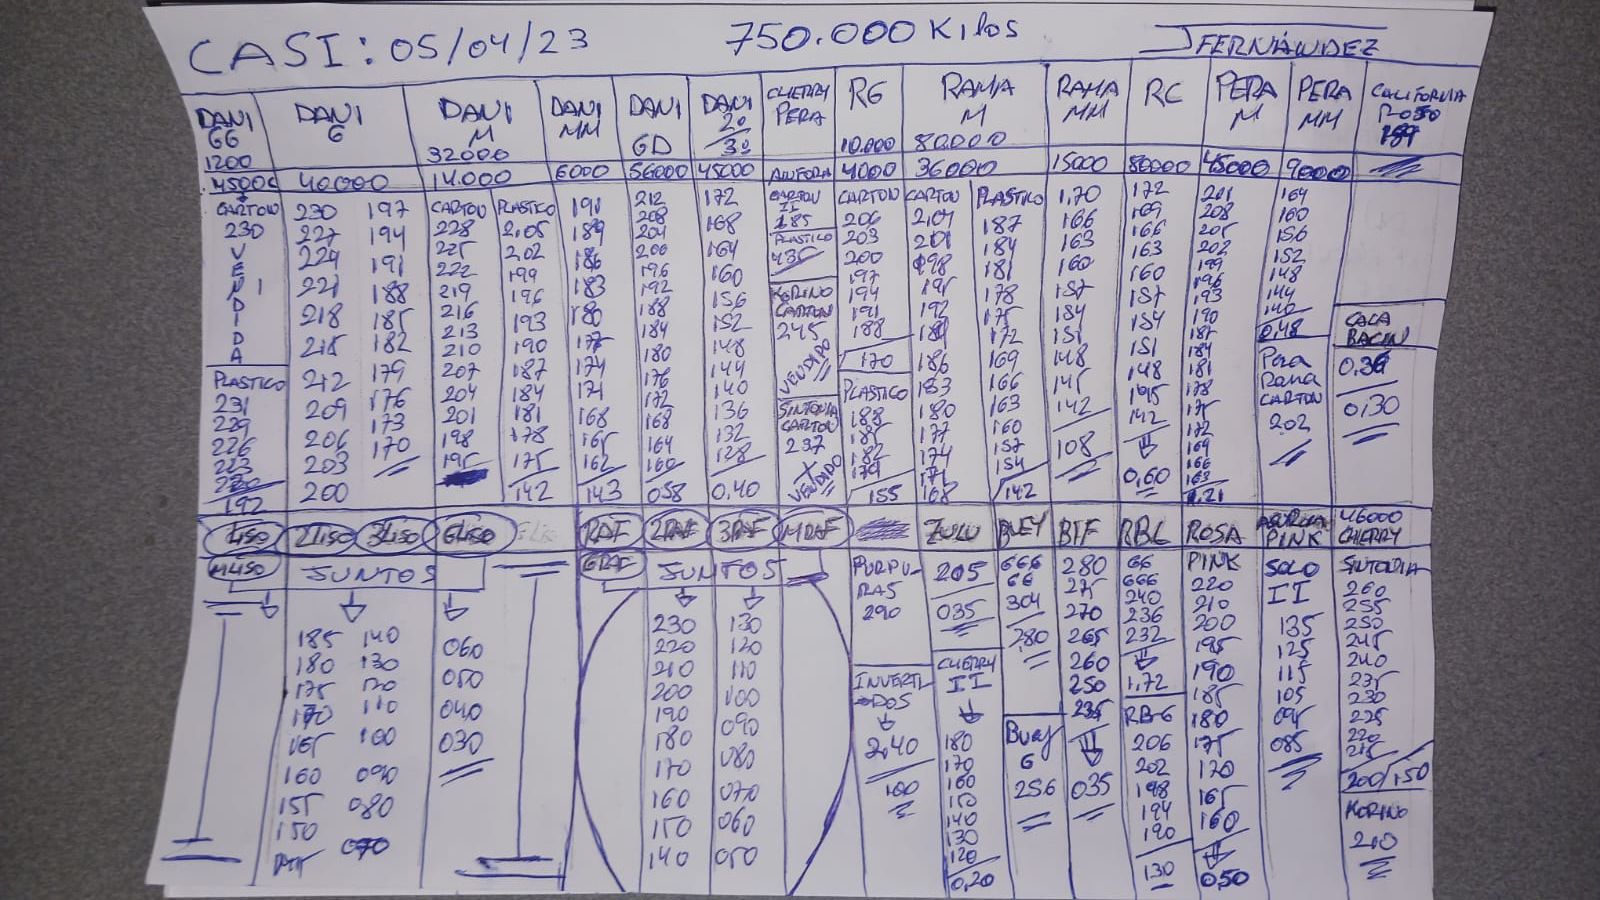 CASI: 05/04/23 750.000 Kilos J FERNÁNDEZ
DANI GG 1200
DANI G
DANI M 32000
DANI MM
DANI GD
DANI 20 30
CHERRY PERA
RG 10.000
RAMA M 80.000
RAMA MM
RC
PERA M
PERA MM
CALIFORNIA ROJO
45000 40000 14.000 6000 56000 45000 4000 36000 15000 80000 45000 9000
CARTON
230
VENDIDA
PLASTICO
231
229
226
223
220
192
230 197
227 194
224 191
221 188
218 185
215 182
212 179
209 176
206 173
203 170
200
CARTON PLASTICO
228 2,05
225 202
222 199
219 196
216 193
213 190
210 187
207 184
204 181
201 178
198 175
195 142
191
189
186
183
180
177
174
171
168
165
162
143
212
208
204
200
196
192
188
184
180
176
172
168
164
160
058
172
168
164
160
156
152
148
144
140
136
132
128
0,40
CARTON
II
185
PLASTICO
435
KORINO
CARTON
245
VENDIDO
SINTONIA
CARTON
237
VENDIDO
CARTON
206
203
200
197
194
191
188
170
PLASTICO
188
185
182
179
155
CARTON PLASTICO
204 187
201 184
198 181
195 178
192 175
189 172
186 169
183 166
180 163
177 160
174 157
171 154
168 142
1,70
166
163
160
157
154
151
148
145
142
108
172
169
166
163
160
157
154
151
148
145
142
0,60
201
208
205
202
199
196
193
190
187
184
181
178
175
172
169
166
163
1,21
164
160
156
152
148
144
140
0,48
Pera
Rama
CARTON
202
CALA
BACIN
0,36
0,30
1LISO 2LISO 3LISO GLISO
MLISO JUNTOS
185 140
180 130
175 120
170 110
165 100
160 090
155 080
150 070
060
050
040
030
RAF 2RAF 3RAF MRAF
GRAF JUNTOS
230 130
220 120
210 110
200 100
190 090
180 080
170 070
160 060
150 050
140
PURPU-
RAS
290
INVERTI-
DOS
2,40
100
ZULU
205
035
CHERRY
II
180
170
160
150
140
130
120
0,20
BUEY
666
66
304
280
Buey
G
256
BTF
280
275
270
265
260
250
235
035
RBL
66
666
240
236
232
1,72
RBG
206
202
198
194
190
130
ROSA
PINK
220
210
200
195
190
185
180
175
170
165
160
0,50
PINK
SOLO
II
135
125
115
105
095
085
46000
CHERRY
SINTONIA
260
255
250
245
240
235
230
225
220
215
200/150
KORINO
210